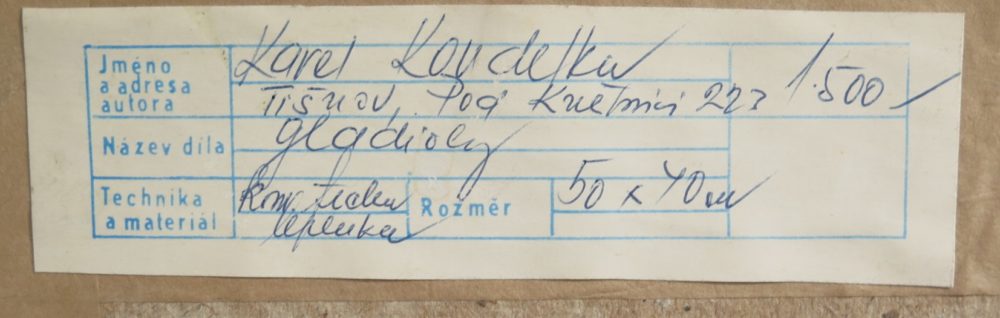 Jméno
a adresa
autora
Karel Koudelka
Tišnov, Pod Květnicí 223
1.500
Název díla
gladioly
Technika
a materiál
komb. technika
lepenka
Rozměr
50 x 40 cm